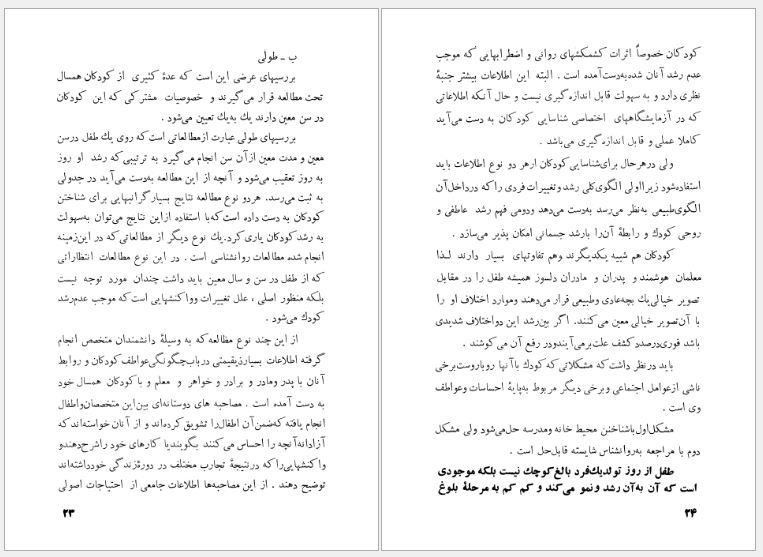 ب ـ طولی
بررسیهای عرضی این است که عدهٔ کثیری از کودکان همسال
تحت مطالعه قرار می‌گیرند و خصوصیات مشترکی که این کودکان
در سن معین دارند یك به‌یك تعیین می‌شود .
بررسیهای طولی عبارت ازمطالعاتی است که روی یك طفل درسن
معین و مدت معین ازآن سن انجام می‌گیرد به ترتیبی که رشد او روز
به روز تعقیب می‌شود و آنچه از این مطالعه به‌دست می‌آید در جدولی
به ثبت می‌رسد. هردو نوع مطالعه نتایج بسیار گرانبهایی برای شناختن
کودکان به دست داده است که‌با استفاده ازاین نتایج می‌توان به‌سهولت
به رشد کودکان یاری کرد. یك نوع دیگر از مطالعاتی که در این‌زمینه
انجام شده مطالعات روانشناسی است . در این نوع مطالعات انتظاراتی
که از طفل در سن و سال معین باید داشت چندان مورد توجه نیست
بلکه منظور اصلی ، علل تغییرات وواکنشهایی است که موجب عدم‌رشد
کودك می‌شود .
از این چند نوع مطالعه که به وسیلهٔ دانشمندان متخصص انجام
گرفته اطلاعات بسیارذیقیمتی درباب‌چگونگی‌عواطف کودکان و روابط
آنان با پدر ومادر و برادر و خواهر و معلم و با کودکان همسال خود
به دست آمده است . مصاحبه های دوستانه‌ای بین‌این متخصصان‌واطفال
انجام یافته که‌ضمن‌آن اطفال‌را تشویق کرده‌اند و از آنان خواسته‌اند که
آزادانه‌آنچه را احساس می‌کنند بگویندیا کارهای خود راشرح‌دهندو
واکنشهایی‌را که درنتیجهٔ تجارب مختلف در دورهٔ‌زندگی خودداشته‌اند
توضیح دهند . از این مصاحبه‌ها اطلاعات جامعی از احتیاجات اصولی
۲۳
کودکان خصوصاً اثرات کشمکشهای روانی و اضطرابهایی که موجب
عدم رشد آنان شده‌به‌دست‌آمده است . البته این اطلاعات بیشتر جنبهٔ
نظری دارد و به سهولت قابل اندازه‌گیری نیست و حال آنکه اطلاعاتی
که در آزمایشگاههای اختصاصی شناسایی کودکان به دست می‌آید
کاملا عملی و قابل اندازه‌گیری می‌باشد .
ولی درهرحال برای‌شناسایی‌کودکان ازهر دو نوع اطلاعات باید
استفاده‌شود زیرااولی الگوی‌کلی رشد و تغییرات فردی را که درداخل‌آن
الگوی‌طبیعی به‌نظر می‌رسد به‌دست می‌دهد ودومی فهم رشد عاطفی و
روحی کودك و رابطهٔ آن‌را بارشد جسمانی امکان پذیر می‌سازد .
کودکان هم شبیه یکدیگرند وهم تفاوتهای بسیار دارند لـذا
معلمان هوشمند و پدران و مادران دلسوز همیشه طفل را در مقابل
تصویر خیالی یك بچه‌عادی وطبیعی قرار می‌دهند وموارد اختلاف او را
با آن‌تصویر خیالی معین می‌کنند. اگر بین‌رشد این دواختلاف شدیدی
باشد فوری‌درصدد کشف علت‌برمی‌آیندودر رفع آن می‌کوشند .
باید درنظر داشت که مشکلاتی که کودك باآنها روبروست‌برخی
ناشی ازعوامل اجتماعی وبرخی دیگر مربوط به‌پایهٔ احساسات وعواطف
وی است .
مشکل‌اول‌باشناختن محیط خانه ومدرسه حل‌می‌شود ولی مشکل
دوم با مراجعه به‌روانشناس شایسته قابل‌حل است .
طفل از روز تولدیك‌فرد بالغ‌کوچك نیست بلکه موجودی
است که آن به‌آن رشد ونمو می‌کند و کم کم به مرحلهٔ بلوغ
۲۴